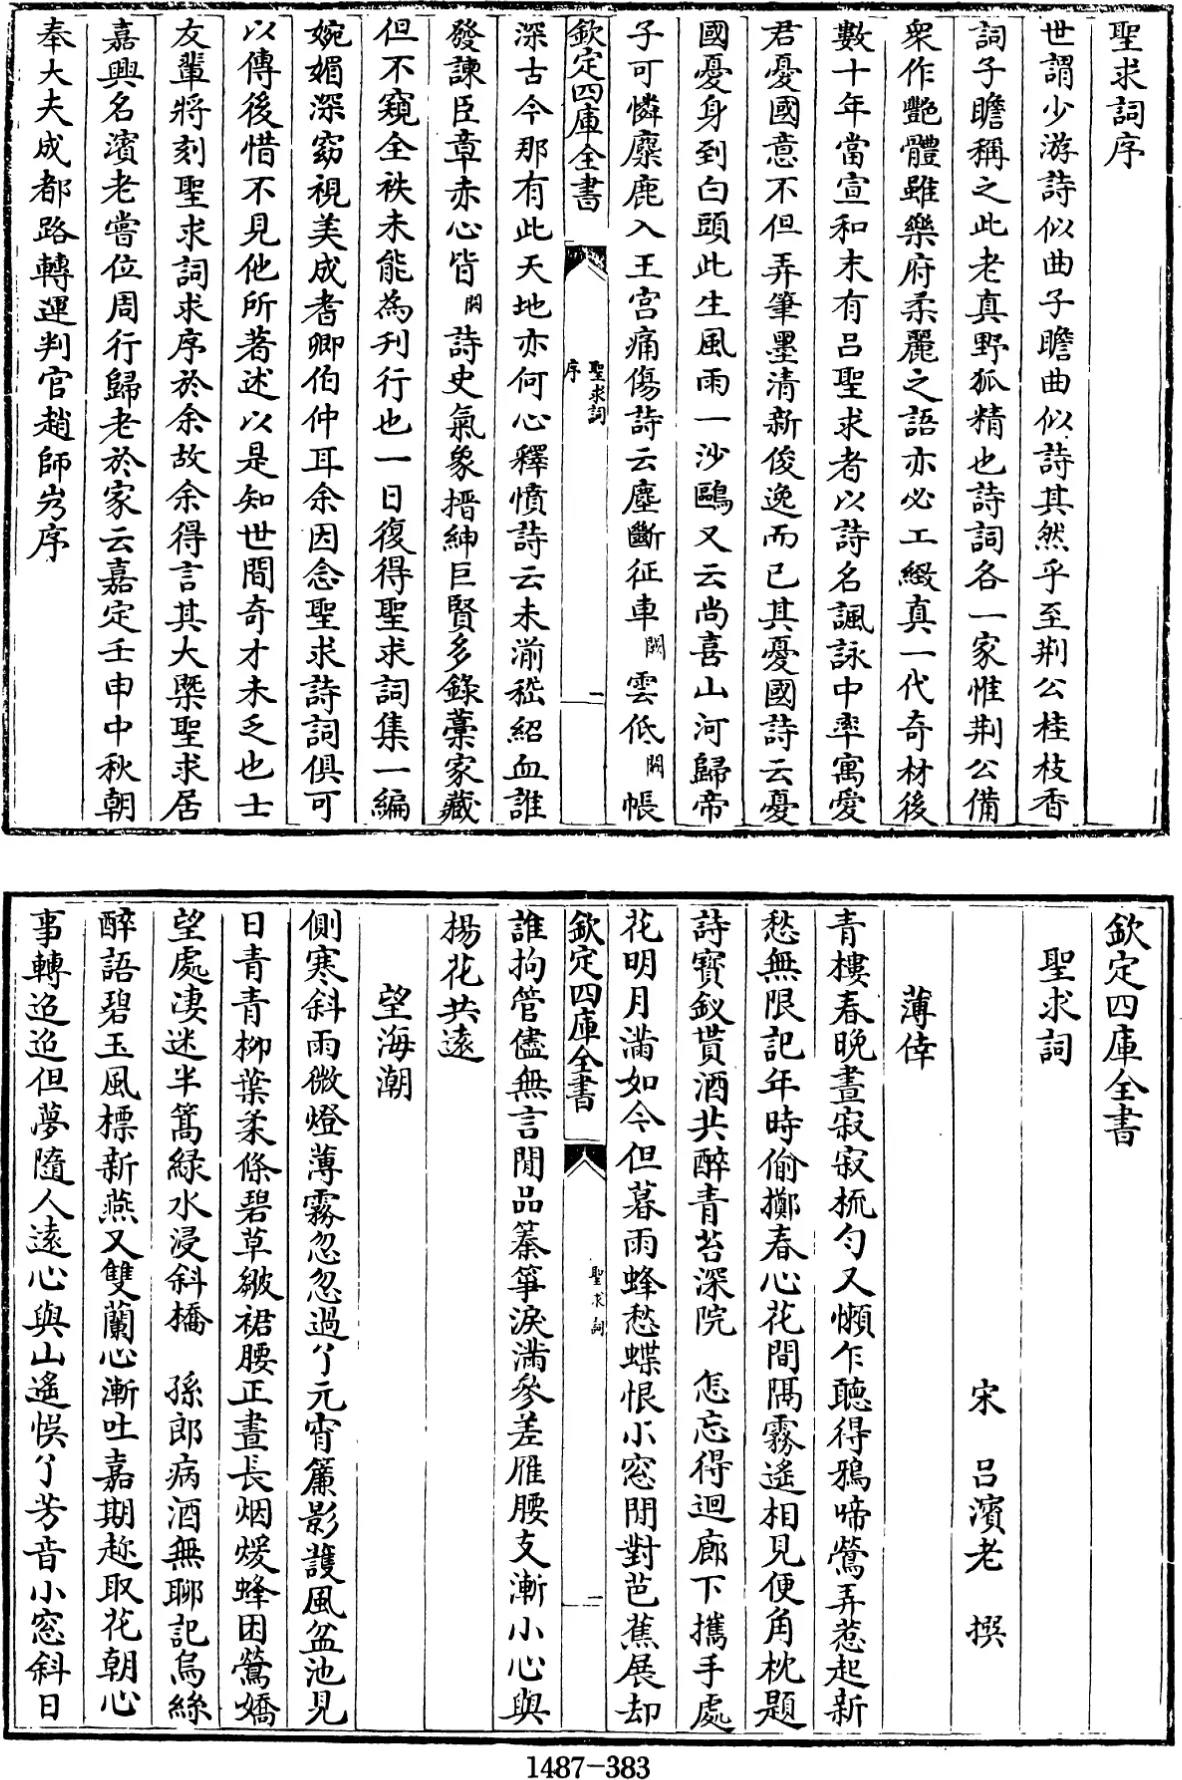 聖求詞序
世謂少游詩似曲子瞻曲似詩其然乎至荆公桂枝香
詞子瞻稱之此老真野狐精也詩詞各一家惟荆公備
衆作艷體雖樂府柔麗之語亦必工緻真一代奇材後
數十年當宣和末有吕聖求者以詩名諷詠中率寓愛
君憂國意不但弄筆墨清新俊逸而已其憂國詩云憂
國憂身到白頭此生風雨一沙鷗又云尚喜山河歸帝
子可憐麋鹿入王宫痛傷詩云塵斷征車闕雲低闕帳
欽定四庫全書
聖求詞
序
二
深古今那有此天地亦何心釋憤詩云未湔嵇紹血誰
發諫臣章赤心皆闕詩史氣象搢紳巨賢多錄藁家藏
但不窺全袟未能為刊行也一日復得聖求詞集一編
婉媚深窈視美成耆卿伯仲耳余因念聖求詩詞俱可
以傳後惜不見他所著述以是知世間奇才未乏也士
友輩將刻聖求詞求序於余故余得言其大槩聖求居
嘉興名濱老嘗位周行歸老於家云嘉定壬申中秋朝
奉大夫成都路轉運判官趙師岌序
欽定四庫全書
聖求詞
宋 吕濱老 撰
薄倖
青樓春晚晝寂寂梳勻又懶乍聽得鴉啼鶯弄惹起新
愁無限記年時偷擲春心花間隔霧遙相見便角枕題
詩寶釵貰酒共醉青苔深院 怎忘得迴廊下攜手處
花明月滿如今但暮雨蜂愁蝶恨小窓閒對芭蕉展却
欽定四庫全書
聖求詞
一
誰拘管儘無言閒品秦箏淚滿參差雁腰支漸小心與
楊花共遠
望海潮
側寒斜雨微燈薄霧忽忽過了元宵簾影護風盆池見
日青青柳葉柔條碧草皴裙腰正晝長烟煖蜂困鶯嬌
望處凄迷半篙緑水浸斜橋 孫郎病酒無聊記烏絲
醉語碧玉風標新燕又雙蘭心漸吐嘉期趂取花朝心
事轉迢迢但夢隨人遠心與山遙悞了芳音小窓斜日
1487-383